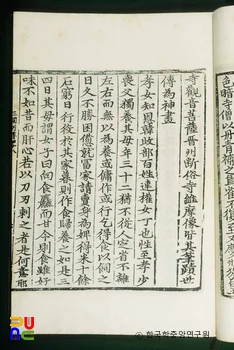 寺觀音菩薩晉州斷俗寺維摩像皆其筆蹟世
傳爲神畫
孝女知恩韓歧部百姓連權女丁也性至孝少
喪父獨養其母年三十二猶不從人定省不離
左右而無以爲養或傭作或行乞得食以飼之
日久不勝困憊就富家請賣身爲婢得米十餘
石窮日行役於其家暮則作食歸養之如是三
四日其母謂女子曰向食麤而甘今則食雖好
味不如昔而肝心若以刀刃刺之者是何意耶
한국학중앙연구원